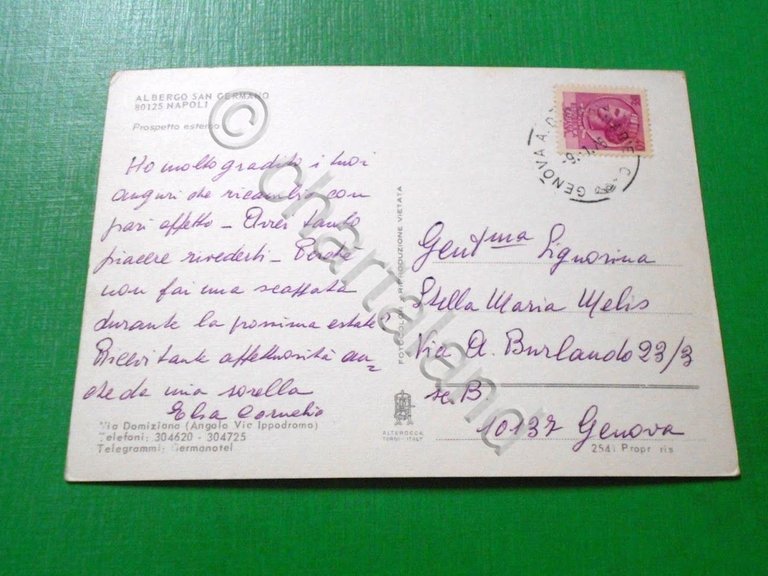 ALBERGO SAN GERMANO
80125 NAPOLI
Prospetto esterno
Ho molto gradito i tuoi
auguri che ricambio con
pari affetto - Avrei tanto
piacere rivederti - Perché
non fai una scappata
durante la prossima estate?
Ricevi tante affettuosità an=
che da mia sorella
Elsa Cornelio
Via Domiziana (Angolo Via Ippodromo)
Telefoni: 304620 - 304725
Telegrammi: Germanotel
FOTOCOLOR RIPRODUZIONE VIETATA
ALTEROCCA
TERNI - ITALY
GENOVA A.D.
Gent.ma Signorina
Stella Maria Melis
Via A. Burlando 23/3
sc. B.
10137 Genova
2541 Propr ris
© chartaland